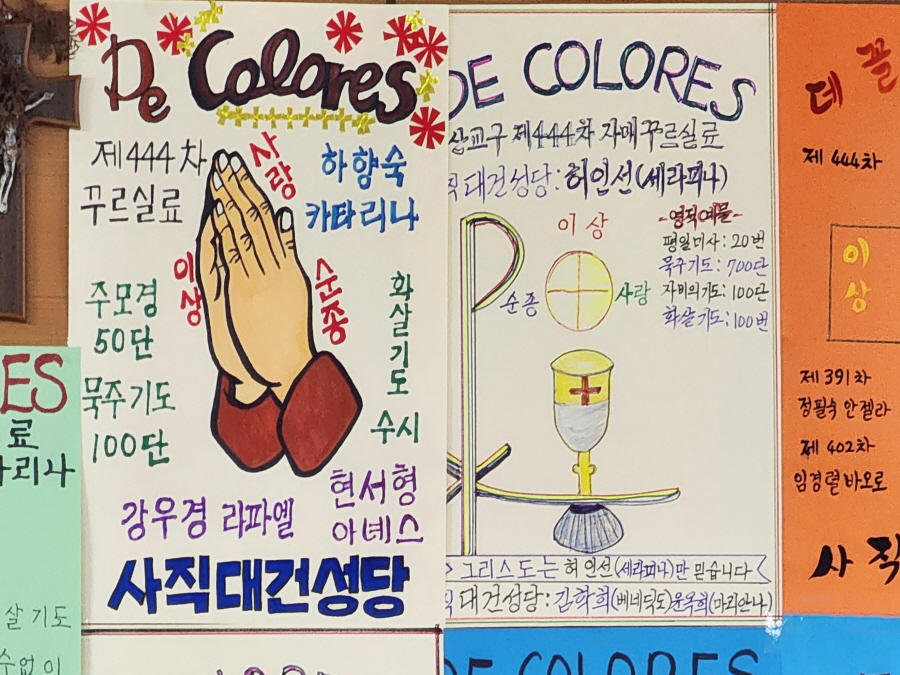 De Colores
제444차
꾸르실료
사랑
하향숙
카타리나
이상
순종
주모경
50단
묵주기도
100단
화살기도
수시
강우경 라파엘
현서형
아녜스
사직대건성당
DE COLORES
교구 제444차 자매꾸르실료
대건성당: 허인선(세라피나)
이상
순종
사랑
-영적예물-
평일미사: 20번
묵주기도: 700단
자비의기도: 100단
화살기도: 100번
그리스도는 허인선(세라피나)만 믿습니다
대건성당: 김학희(베네딕도)윤옥희(마리안나)
데 꼴
제 444차
이상
제 391차
정필숙 안젤라
제 402차
임경렬 바오로
사직
ES
료
리나
살기도
수없이
DE COLORES